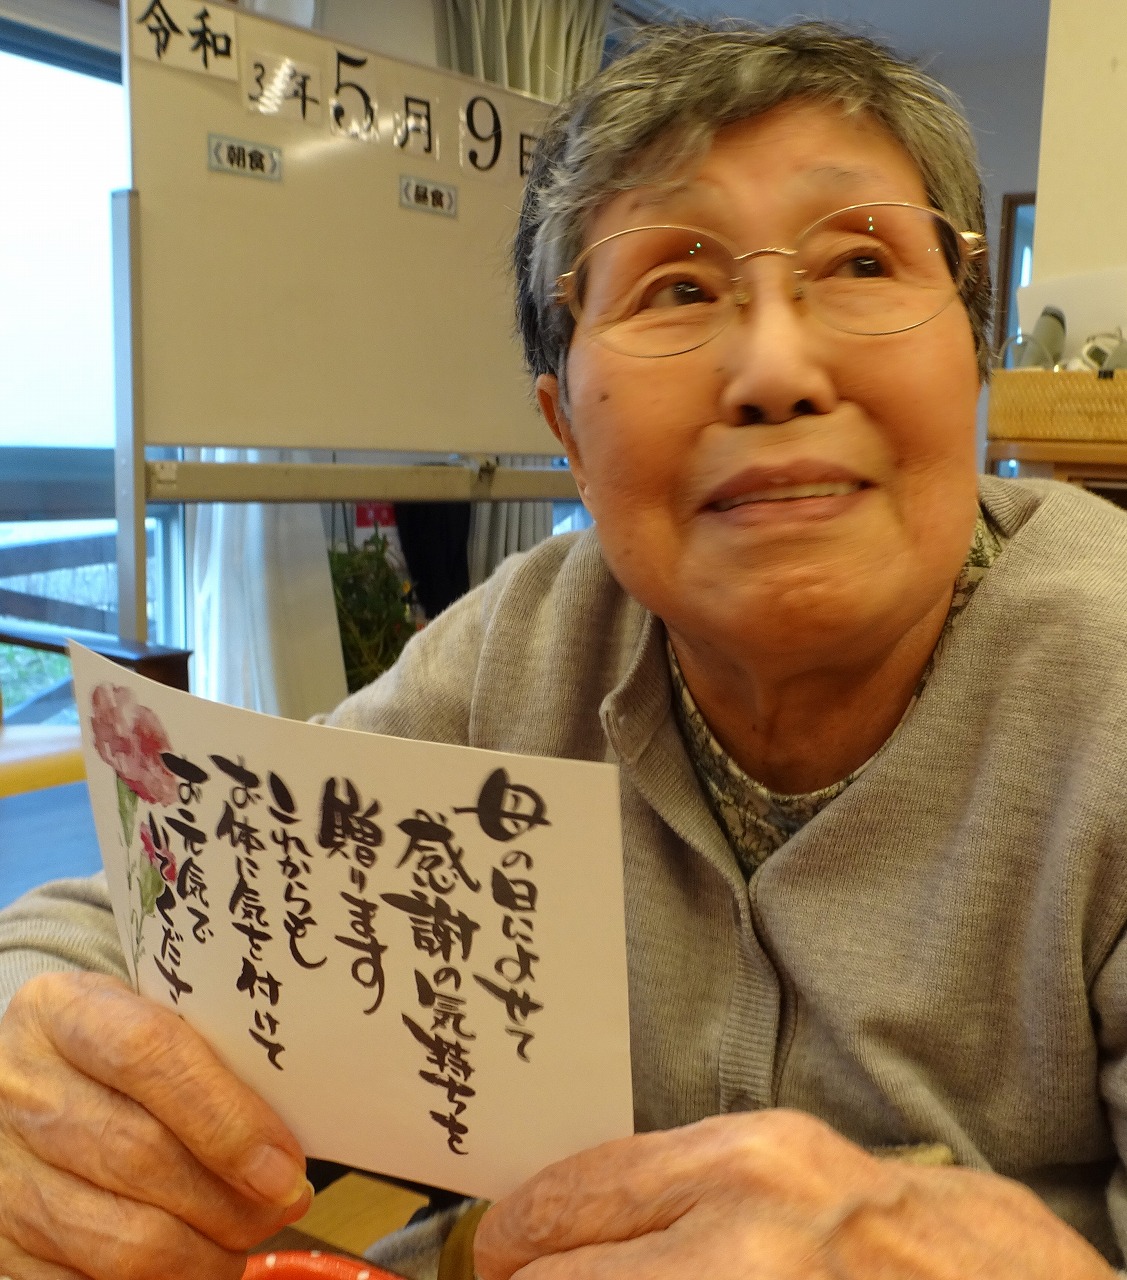 令和3年5月9日
《朝食》
《昼食》
母の日によせて
感謝の気持ちを
贈ります
これからも
お体に気を付けて
お元気で
いてくださ